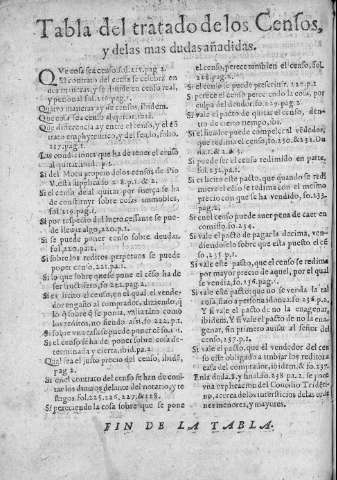 Tabla del tratado de los Censos,
y delas mas dudas añadidas.
QVe cosa sea censo fol. 215. pag 2.
Si el contrato del censo se celebra en
dos maneras, y se diuide en censo real,
y personal fol. 216. pag. 1.
Quatro maneras ay de censos, ibidem.
Que cosa sea censo al quitar. ibid.
Que differencia ay entre el censo, y el cõ
trato emphyteutico, y del feudo, folio.
217. pag. 1.
Las condiciones que ha de tener el censo
al quitar. ibid.
Si del Motu proprio delos censos de Pio
V. esta suplicado
Si el censo de al quitar por fuerça se ha
de constituyr sobre cosas immobles,
fol. 219. pag. 1.
Si por respecto del lucro cessante se pue-
de lleuar algo, 220. p. 1.
Si se puede poner censo sobre deudas.
fol. 220. p. 2.
Si sobre los reditos perpetuos se puede
poner censo. 221. pa. 1.
Si lo que sobre que se pone el cẽso ha de
ser fructifero, fo. 222. pag. 2.
Si es licito el censo, en el qual el vende-
dor engaño al comprador, diziendo, q̃
lo q̃ sobre q̃ se ponia, valia tanto como
los reditos, no siendo assi, fo. 222. p. 2.
Si sobre vna casa se puede poner censo
Si el censo se ha de poner sobre cosa de-
terminada y cierta, ibid. pa. 2.
Qual sea el justo precio del censo, ibid,
pag 2.
Si en el contrato del censo se han de con-
tar los dineros delante del notario, y te
stigos. fol. 225. 226. 227. & 228.
Si pereciendo la cosa sobre que se pone
el censo, perece tambien el censo. fol.
228. pag. 2.
Si el censo se puede prescriuir. p. 1
Si perece el censo pereciendo la cosa, por
culpa del deudor. fo. 229. pag. 2.
Si vale el pacto de quitar el censo, den-
tro de cierto tiempo, ibi.
Si el señor puede compeler al vẽdedor,
que redima el censo, fo. 230. & 231. Du
Si puede ser el censo redimido en parte,
fol. 232. pa. 1.
Si es licito este pacto, que quando se redi
miere el censo se redima con el mesmo
precio con que se ha vendido, fo. 233.
pag. 2.
Si enel censo puede auer pena de caer en
comisso. fo. 234.
Si vale el pacto de pagar la decima, ven-
diendose lo sobre que esta puesto el cẽ
so, 235 p. 1.
Si vale este pacto, que el censo se redima
por mayor precio de aquel, por el qual
se vendio, fo. 236. pag. 1.
Si vale este pacto que no se venda la tal
cosa, sino a persona idonea. fo. 236 p. 2,
Y si vale el pacto de no la enagenar,
ibidem. Y si vale el pacto de no la ena-
genar, sin primero auisar al señor del
censo. 237. p. 1.
Si vale el pacto, que el vendedor del cen
so este obligado a traer los reditos a
casa del comprador, ibidem, & fo. 237.
y final fo. 238. pa. 2. se pone
vna explicacion del Concilio Triden-
tino, acerca delos intersticios de las orde
nes menores, y mayores.
FIN DE LA TABLA.